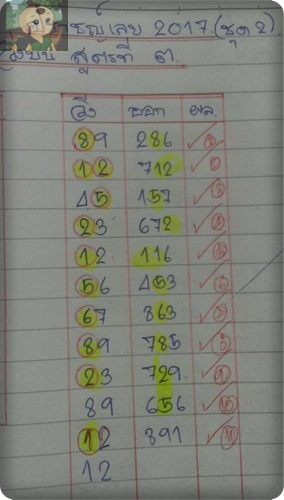 ธญ์เลข 2017.(ชุด 2)
วิ่งบน สูตรที่ ๓.
วิ่ง ออก ผล.
89 286 ✓ 1
12 712 ✓ 2
45 157 ✓
23 672 ✓
12 116 ✓
56 453 ✓ 6
67 863 ✓
89 785 ✓
23 729 ✓ 9
89 656 ✓ 10
12 891 ✓ 11
12